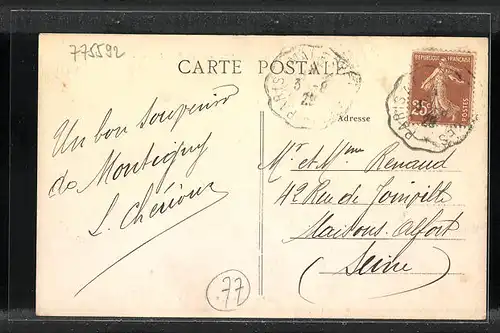 775592
CARTE POSTALE
RÉPUBLIQUE FRANÇAISE
25c
POSTES
PARIS
3 - 8
28
PARIS
Adresse
Un bon souvenir
de Montigny
Mr et Mme Renaud
42 Rue de Joinville
Maisons-Alfort
(Seine)
77